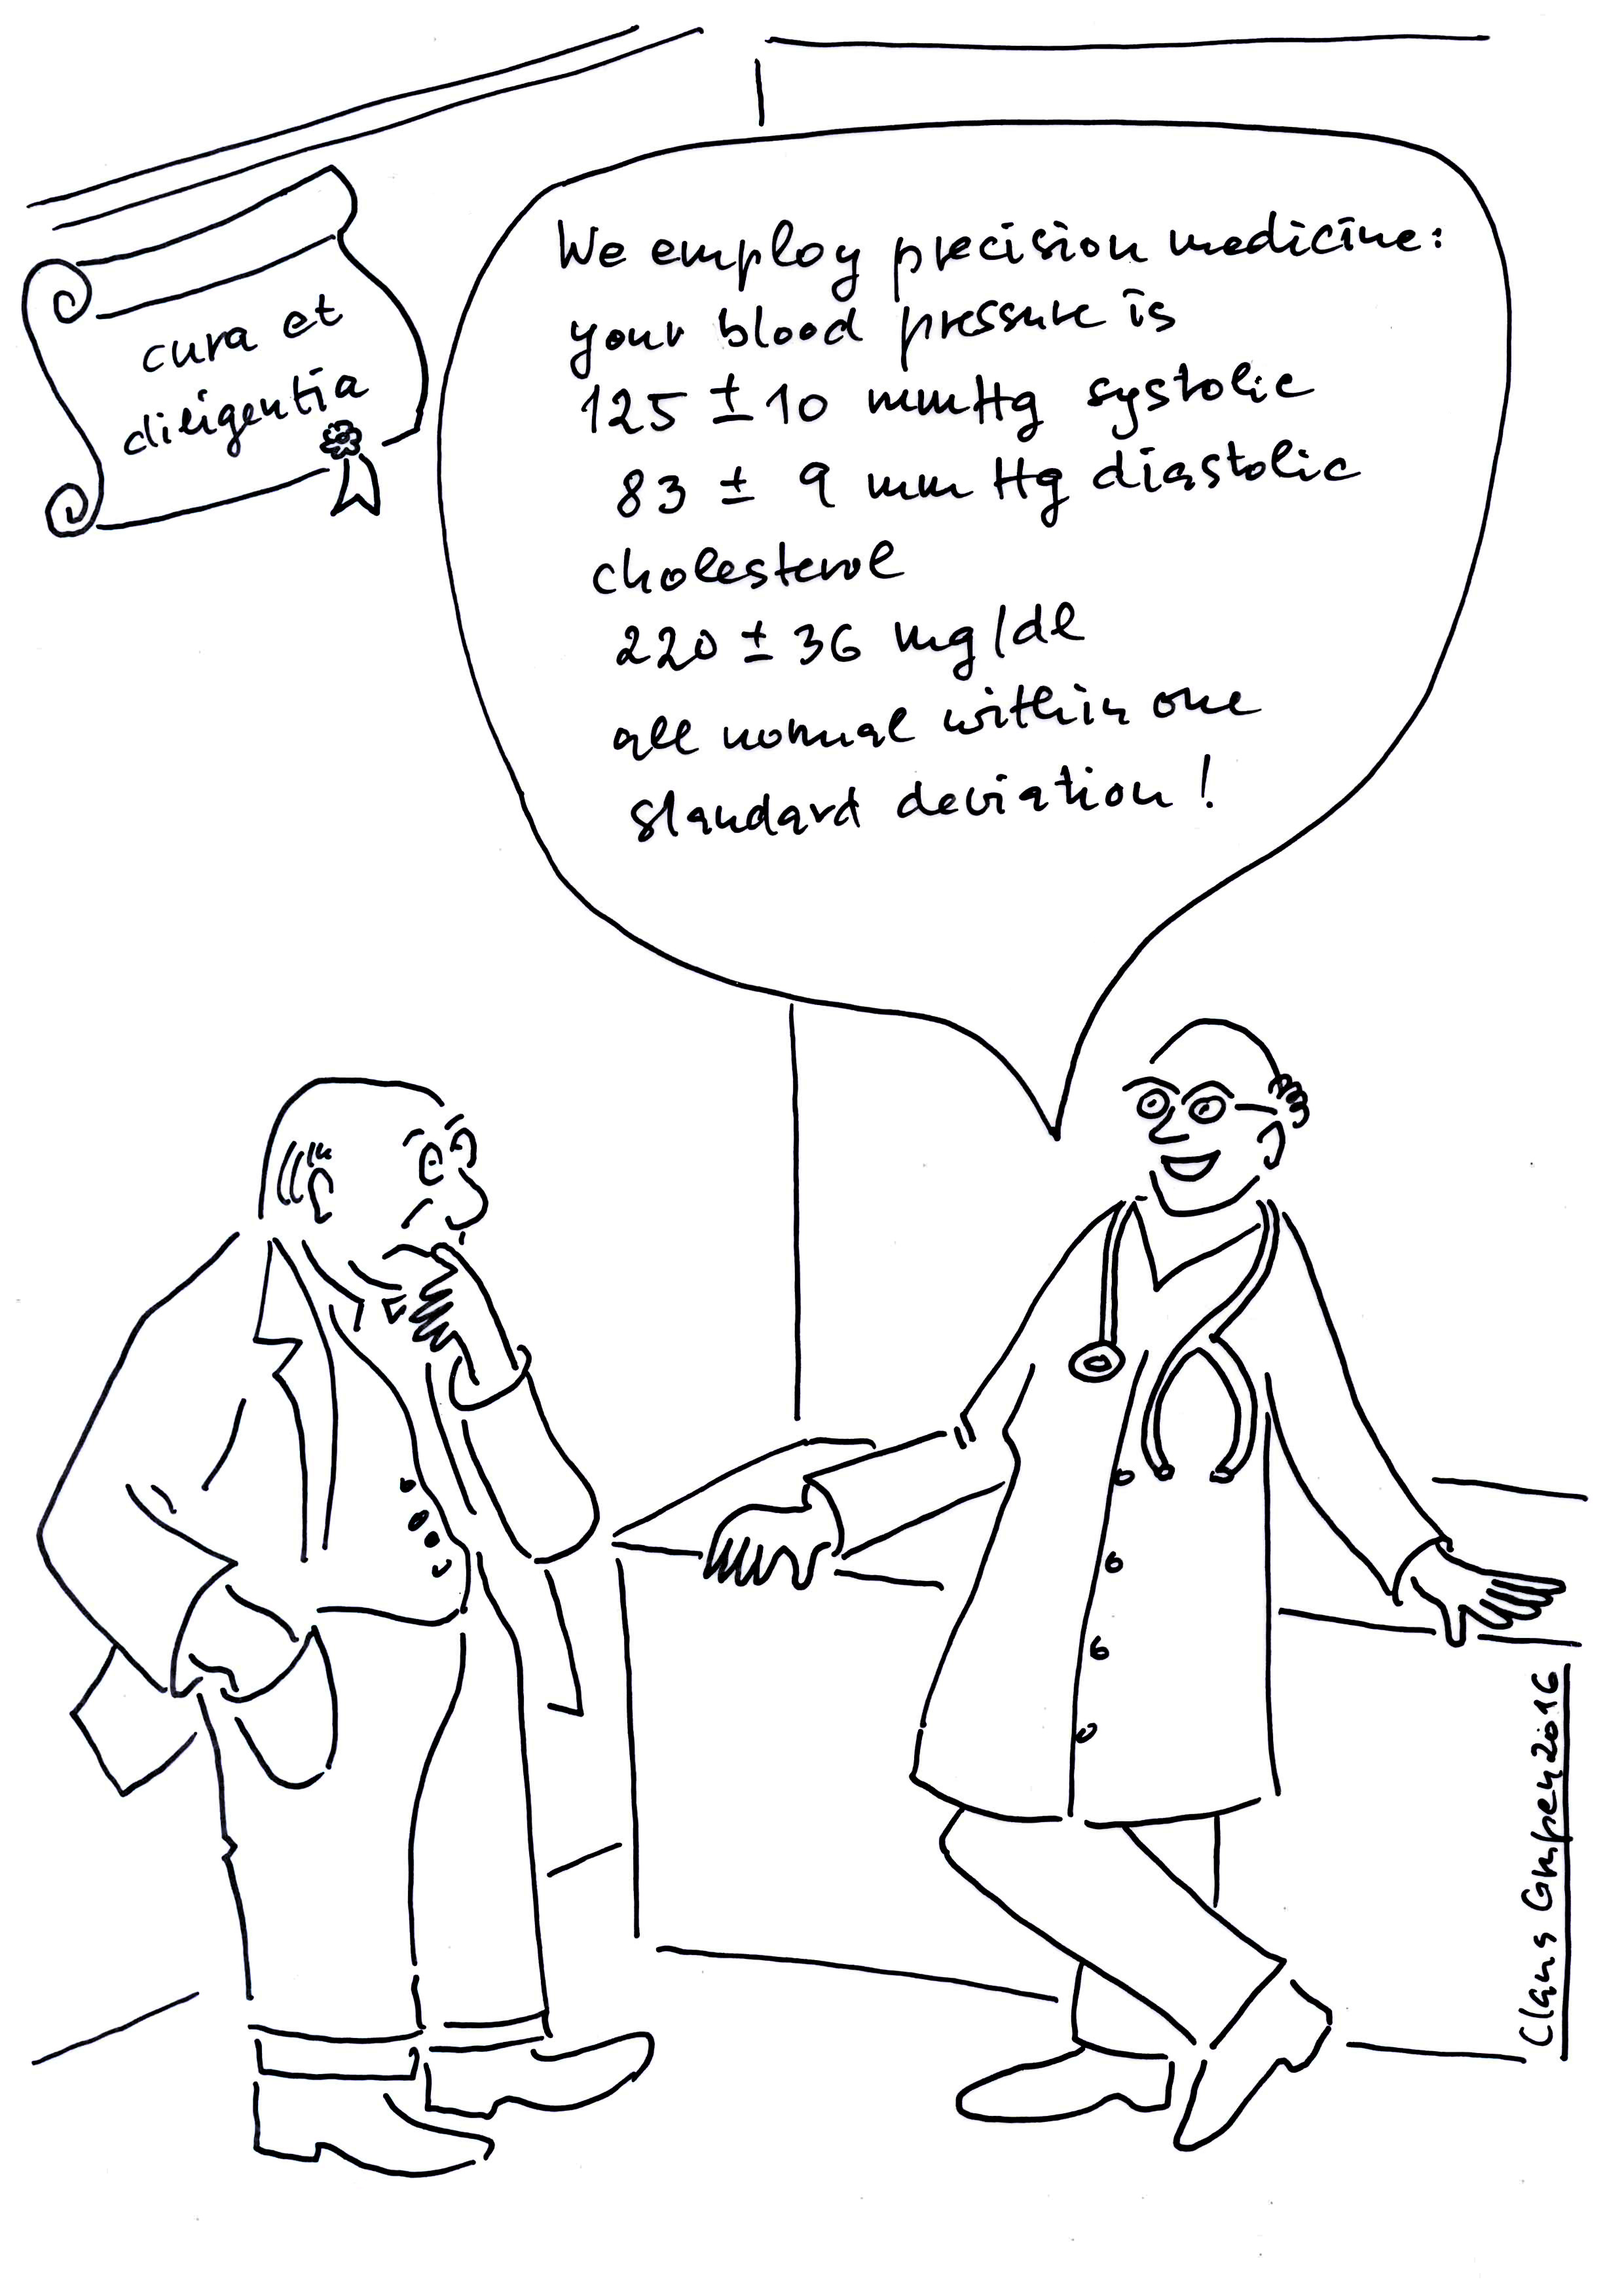 cura et
diligentia
We employ precision medicine:
your blood pressure is
125 ± 10 mmHg systolic
83 ± 9 mm Hg diastolic
cholesterol
220 ± 36 mg/dl
all normal within one
standard deviation!
Claus Grupen 2016